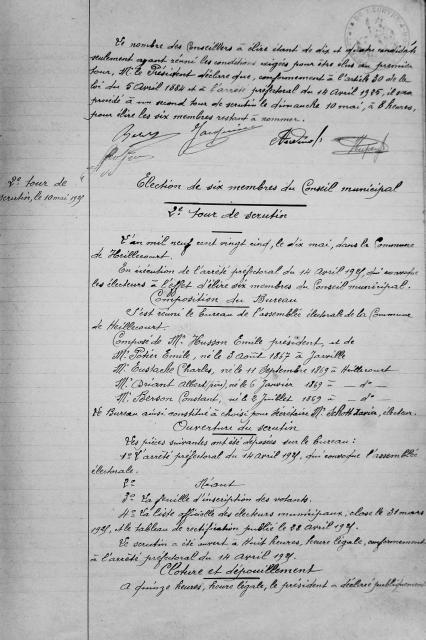 Le nombre des Conseillers à élire étant de dix et quatre candidats
seulement ayant réuni les conditions exigées pour être élus au premier
tour, Mr le Président déclare que, conformément à l'article 30 de la
loi du 5 Avril 1884 et à l'arrêté préfectoral du 14 Avril 1925, il sera
procédé à un second tour de scrutin le dimanche 10 mai, à 8 heures,
pour élire les six membres restant à nommer.
2e tour de
scrutin, le 10 mai 1925
Election de six membres du Conseil municipal
2e tour de scrutin
L'an mil neuf cent vingt cinq, le dix mai, dans la Commune
de Heillecourt.
En exécution de l'arrêté préfectoral du 14 Avril 1925 qui convoque
les électeurs à l'effet d'élire six membres du Conseil municipal.
Composition du Bureau
S'est réuni le bureau de l'assemblée électorale de la Commune
de Heillecourt.
Composé de Mr Husson Emile président, et de
Mr Potier Emile, né le 3 Août 1867 à Jarville
Mr Eustache Charles, né le 11 Septembre 1869 à Heillecourt
Mr Briant Albert, né le 6 Janvier 1869 à — do —
Mr Berson Constant, né le 8 Juillet 1869 à — do —
Le Bureau ainsi constitué a choisi pour Secrétaire Mr Schott Xavier, électeur.
Ouverture du scrutin
Les pièces suivantes ont été déposées sur le bureau :
1o L'arrêté préfectoral du 14 avril 1925, qui convoque l'assemblée
électorale.
2o Néant
3o La feuille d'inscription des votants.
4o La liste officielle des électeurs municipaux, close le 31 mars
1925, et le tableau de rectification publié le 28 Avril 1925.
Le scrutin a été ouvert à huit heures, heure légale, conformément
à l'arrêté préfectoral du 14 Avril 1925.
Clôture et dépouillement
A quinze heures, heure légale, le président a déclaré publiquement